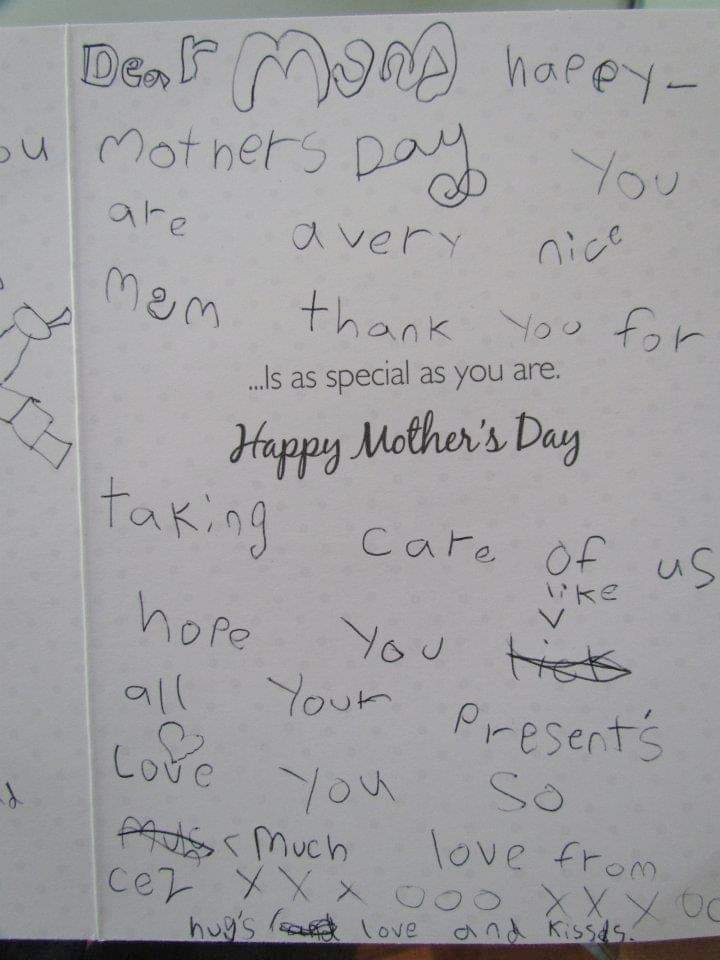 Dear Mom happy-
mothers Day You
are avery nice
mom thank you for
...Is as special as you are.
Happy Mother's Day
taking care of us
like
hope you lick
all your Present's
Love you so
much love from
cez XXX OOO XXX OO
hug's love and kisses.
ou